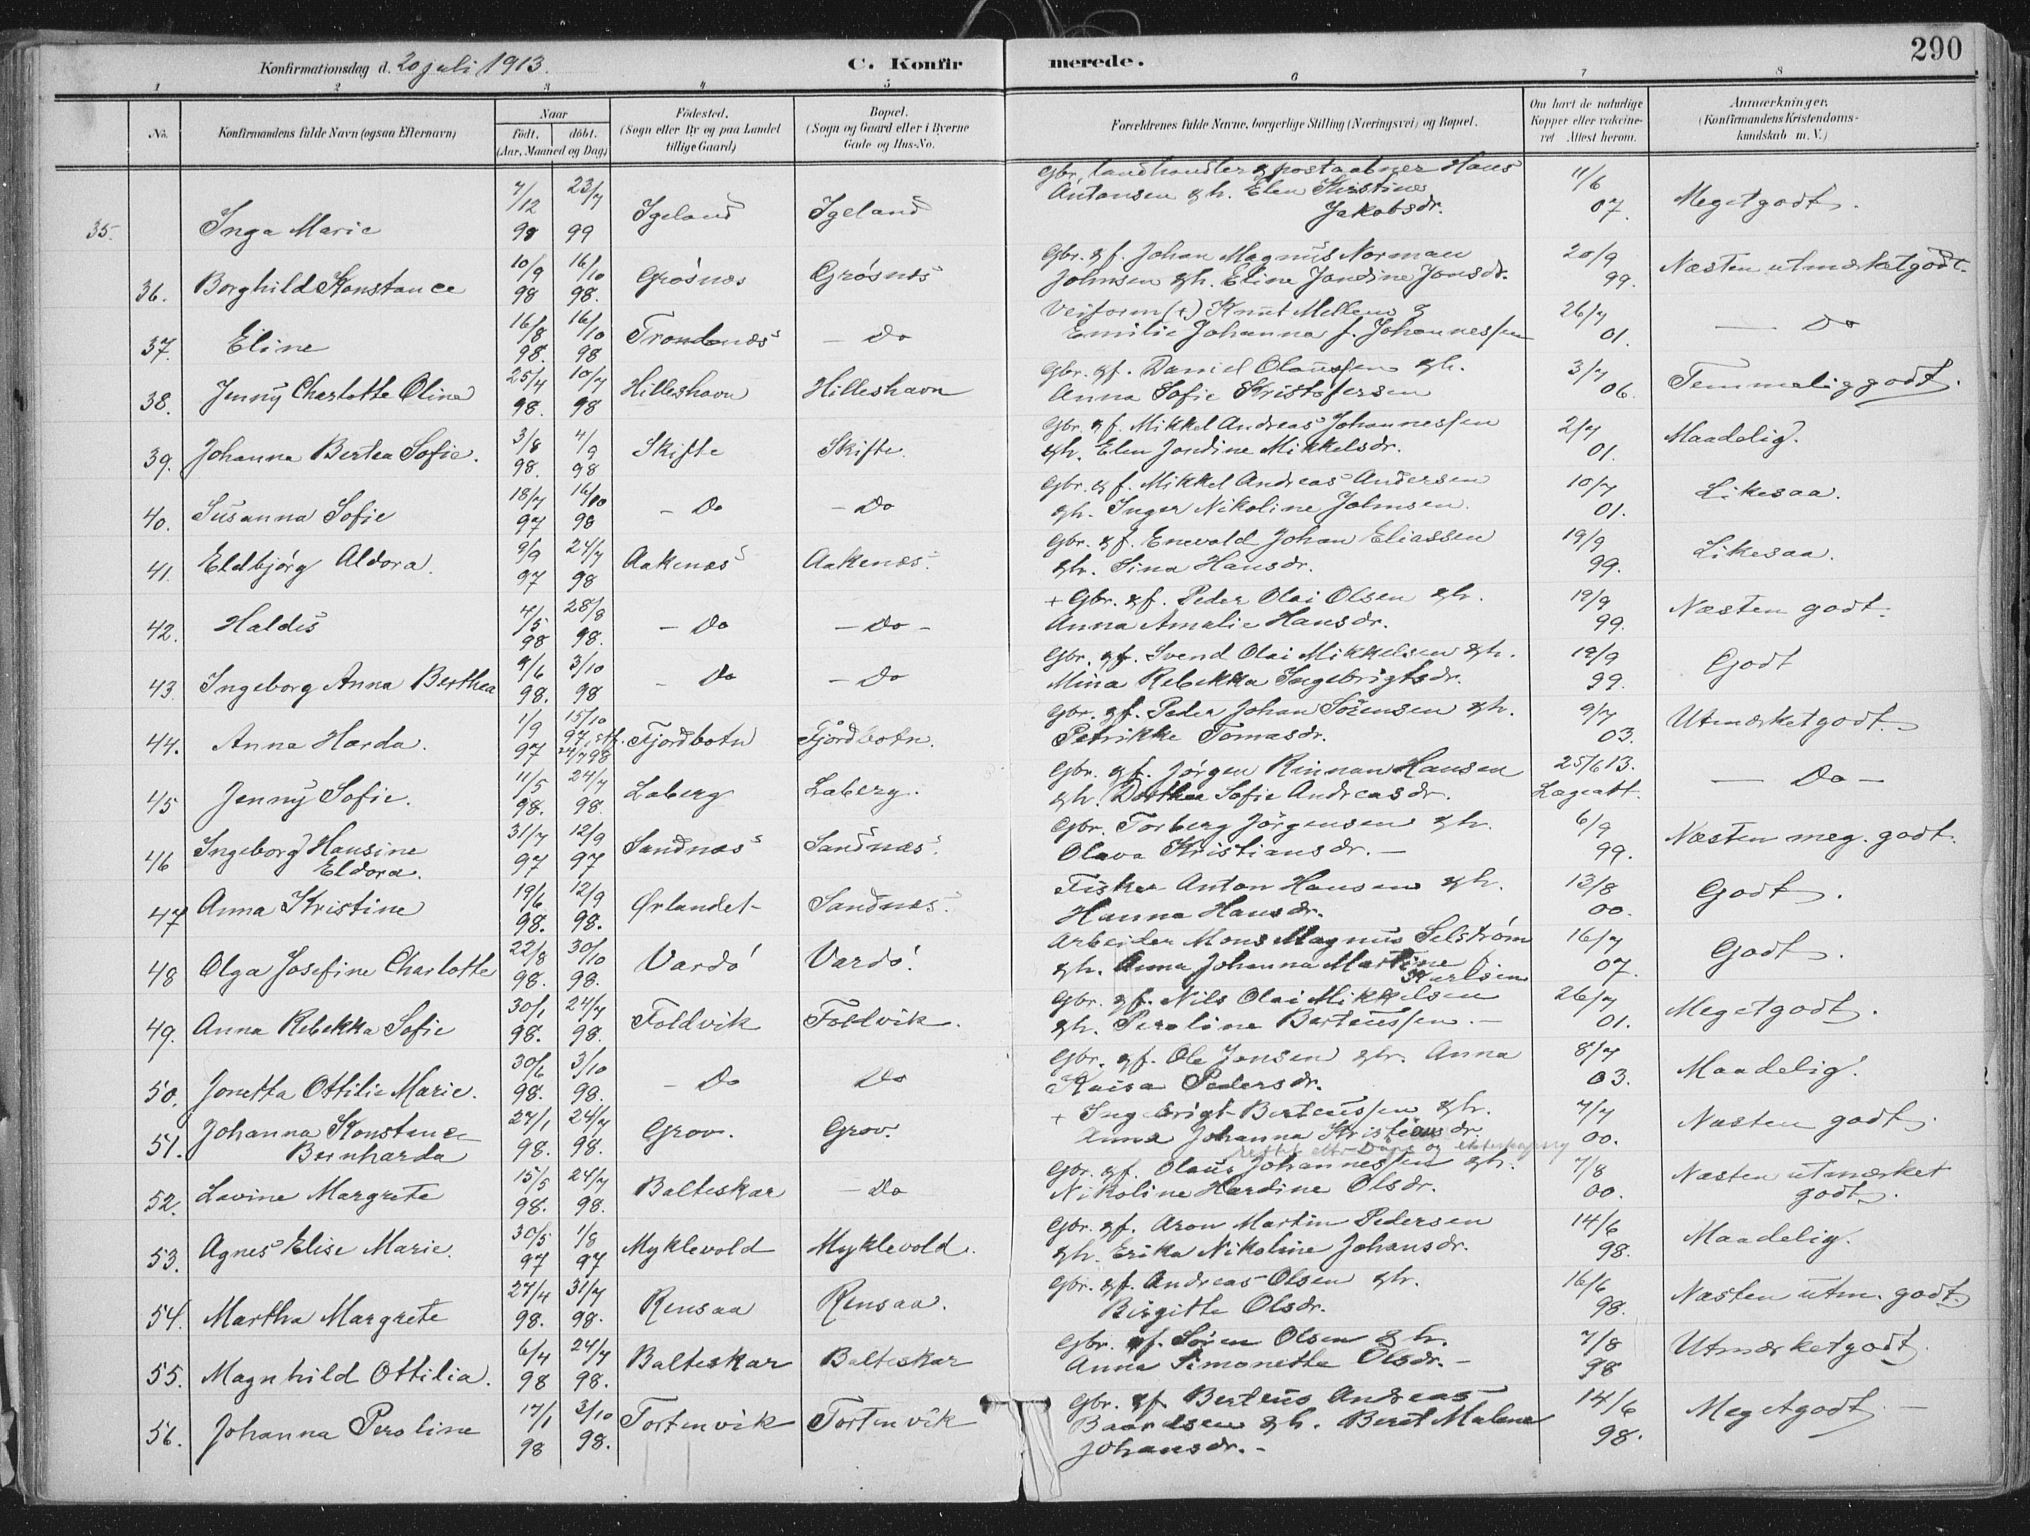 290
Konfirmationsdag d. 20 juli 1913. C. Konfirmerede.
1 2 3 4 5 6 7 8
No. Konfirmandens fulde Navn (ogsaa Efternavn) Naar født, døbt. (Aar, Maaned og Dag) Fødested. (Sogn eller By og paa Landet tillige Gaard) Bopæl. (Sogn og Gaard eller i Byerne Gade og Hus-No. Forældrenes fulde Navne, borgerlige Stilling (Næringsvei) og Bopæl. Om havt de naturlige Kopper eller vakcineret Attest herom. Anmærkninger. (Konfirmandens Kristendomskundskab m. V.)
35. Inga Marie 7/12 98 23/7 99 Igeland Igeland Gbr. landhandler & postaabner Hans Antonsen & h. Elen Kristine Jakobsdr. 11/6 07. Megetgodt.
36. Borghild Konstance 10/9 98 16/10 98. Grøsnæs Grøsnæs Gbr. & f. Johan Magnus Norman Johnsen & h. Eline Jandine Jonsdr. 20/9 99. Næsten utmærketgodt.
37. Eline 16/8 98. 16/10 98 Trondenæs - Do Veiform (+) Knut Mellem & Emilie Johanna f. Johannessen 26/7 01. - Do
38. Jenny Charlotte Oline 25/4 98. 10/7 98 Hilleshavn Hilleshavn Gbr. & f. Daniel Olaussen & h. Anna Sofie Kristofersen 3/7 06. Temmelig godt.
39. Johanna Bertea Sofie. 3/8 98. 4/9 98 Skifte Skifte. Gbr. & f. Mikkel Andreas Johannessen & h. Elen Jordine Mikkelsdr. 2/7 01. Maadelig.
40. Susanna Sofie 18/7 97 16/10 98 - Do - Do Gbr. & f. Mikkel Andreas Andersen & h. Inger Nikoline Johnsen. 10/7 01. Likesaa.
41. Eldbjørg Aldora. 9/9 97 24/7 98 Aakenæs Aakenæs. Gbr. & f. Enevald Johan Eliassen & h. Sina Hansdr. 19/9 99. Likesaa.
42. Haldis 7/5 98 28/8 98. - Do - Do - + Gbr. & f. Peder Olai Olsen & h. Anna Amalie Hansdr. 19/9 99. Næsten godt.
43. Ingeborg Anna Berthea 9/6 98. 3/10 98 - Do - Do Gbr. & f. Svend Olai Mikkelsen & h. Mina Rebekka Ingebrigtsdr. 19/9 99. Godt
44. Anna Harda. 1/9 97 15/10 97, stf. 24/7 98 Fjordbotn Fjordbotn. Gbr. & f. Peder Johan Sørensen & h. Petrikke Tomasdr. 9/7 03. Utmærketgodt.
45 Jenny Sofie. 11/5 98. 24/7 98. Laberg Laberg. Gbr. & f. Jørgen Rinnan Hansen & h. Dorthea Sofie Andreasdr. 25/6 13. Lægeatt. - Do -
46 Ingeborg Hansine Eldora. 31/7 97 12/9 97 Sandnæs Sandnæs. Gbr. Torberg Jørgensen & h. Olava Kristiansdr. - 6/9 99. Næsten meg. godt.
47 Anna Kristine 19/6 98. 12/9 98. Ørlandet Sandnæs. Fisker Anton Hansen & h. Hanna Hansdr. 13/8 00. Godt.
48 Olga Josefine Charlotte 22/8 98. 30/10 98. Vardø Vardø. Arbeider Mons Magnus Selstrøm & h. Anna Johanna Martine Karlsen 16/7 07. Godt.
49. Anna Rebekka Sofie 30/1 98. 24/7 98. Foldvik Foldvik. Gbr. & f. Nils Olai Mikkelsen & h. Peroline Berteussen. - 26/7 01. Megetgodt.
50. Jonetta Ottilie Marie. 30/6 98. 3/10 98. - Do Do Gbr. & f. Ole Jensen & h. Anna Kaisa Pedersdr. 8/7 03. Maadelig.
51. Johanna Konstance Bernharda 27/1 98. 24/7 98. Grov. Grov. + Ingebrigt Berteussen & h. Anna Johanna Kristiansdr. 7/7 00. Næsten godt.
52. Lavine Margrete 15/5 98. 24/7 98. Balteskar - Do Gbr. & f. Olaus Johannessen & h. Nikoline Hardine Olsdr. 7/8 00. Næsten utmærket godt.
53. Agnes Elise Marie. 30/5 97 1/8 97 Myklevold Myklevold. Gbr. & f. Aron Martin Pedersen & h. Erika Nikoline Johansdr. 14/6 98. Maadelig.
54. Martha Margrete 27/4 98. 31/7 98. Rensaa Rensaa. Gbr. & f. Andreas Olsen & h. Birgitte Olsdr. 16/6 98. Næsten utm. godt.
55. Magnhild Ottilia. 6/4 98 24/7 98. Balteskar Balteskar Gbr. & f. Søren Olsen & h. Anna Simonette Olsdr. - 7/8 98 Utmærketgodt.
56. Johanna Peroline 17/1 98 3/10 98. Tortenvik Tortenvik Gbr. & f. Berteus Andreas Baardsen & h. Berit Malene Johansdr. - 14/6 98. Megetgodt. -